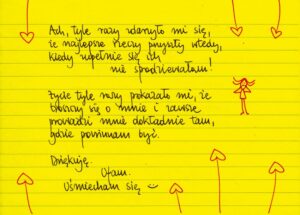 Ach, tyle razy zdarzyło mi się,
że najlepsze rzeczy przyszły wtedy,
kiedy zupełnie się ich
nie spodziewałam!
Życie tyle razy pokazało mi, że
troszczy się o mnie i zawsze
prowadzi mnie dokładnie tam,
gdzie powinnam być.
Dziękuję.
Ufam.
Uśmiecham się